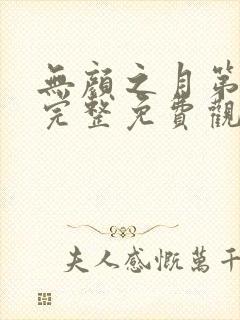 無顏之月第
完整免費觀
夫人感慨萬千